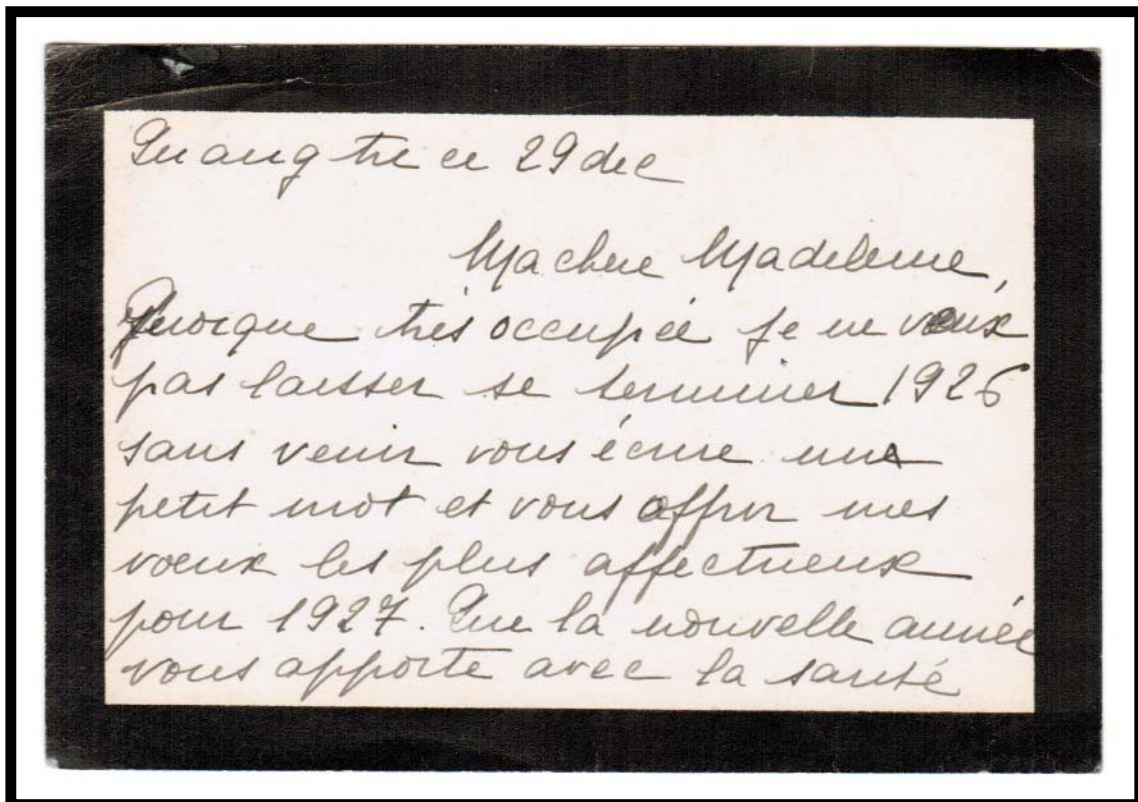 Quang tri ce 29 dec
Ma chere Madeleine,
Quoique très occupée je ne veux
pas laisser se terminer 1926
sans venir vous écrire un
petit mot et vous offrir mes
voeux les plus affectueux
pour 1927. Que la nouvelle année
vous apporte avec la santé